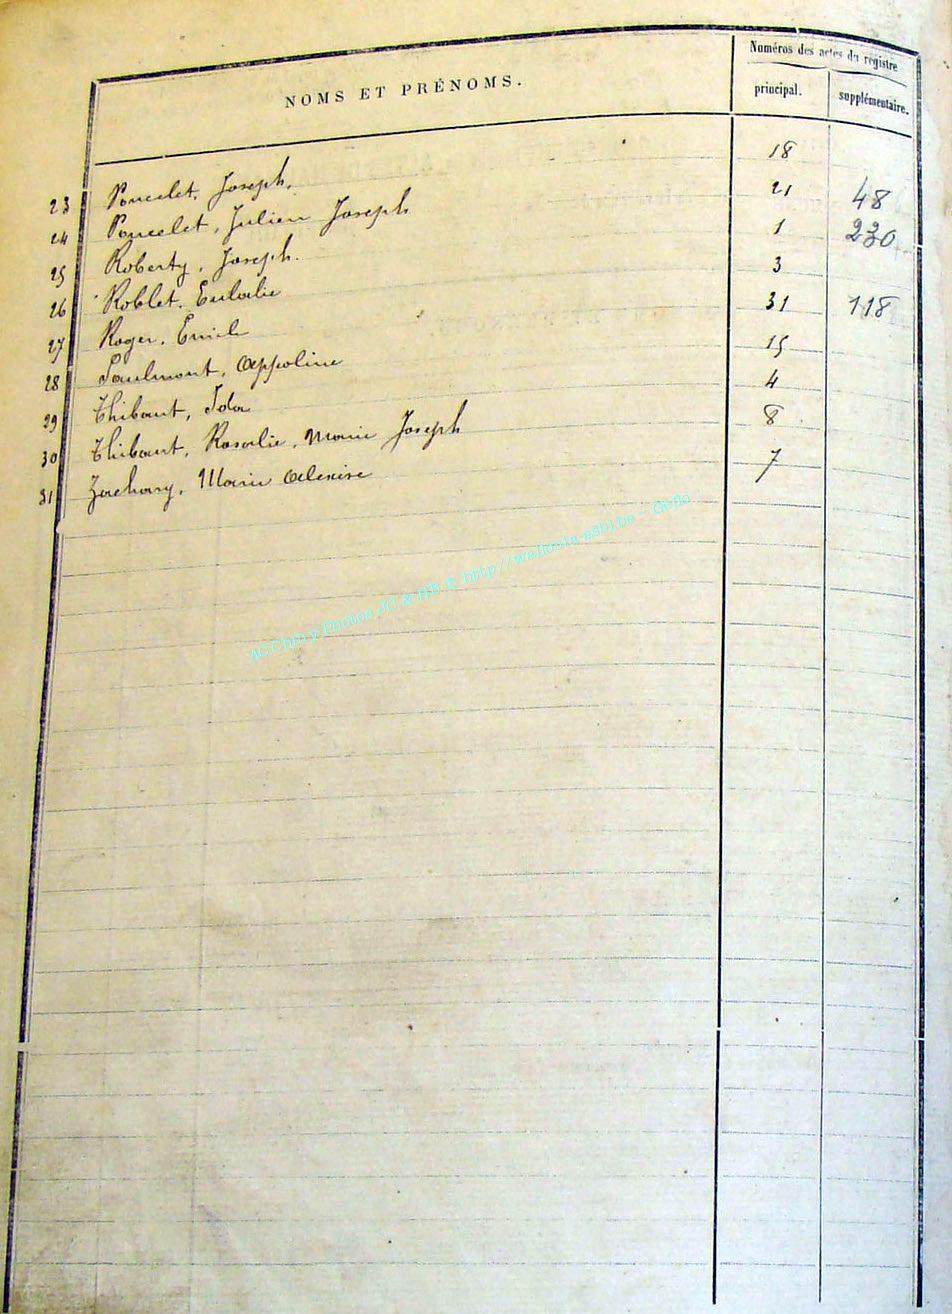 NOMS ET PRÉNOMS.
Numéros des actes du registre
principal. supplémentaire.
23 Poncelet, Joseph. 18
24 Poncelet, Julien Joseph 21 48
25 Roberty, Joseph. 1 230
26 Roblet, Eulalie 3
27 Roger, Emile 31 118
28 Saulmont, Appoline 15
29 Thibaut, Ida 4
30 Thibaut, Rosalie, Marie Joseph 8
31 Zachary, Marie Alexise 7
AC Chiny Photos JC & HB © http://wallonia-asbl.be - Géflo